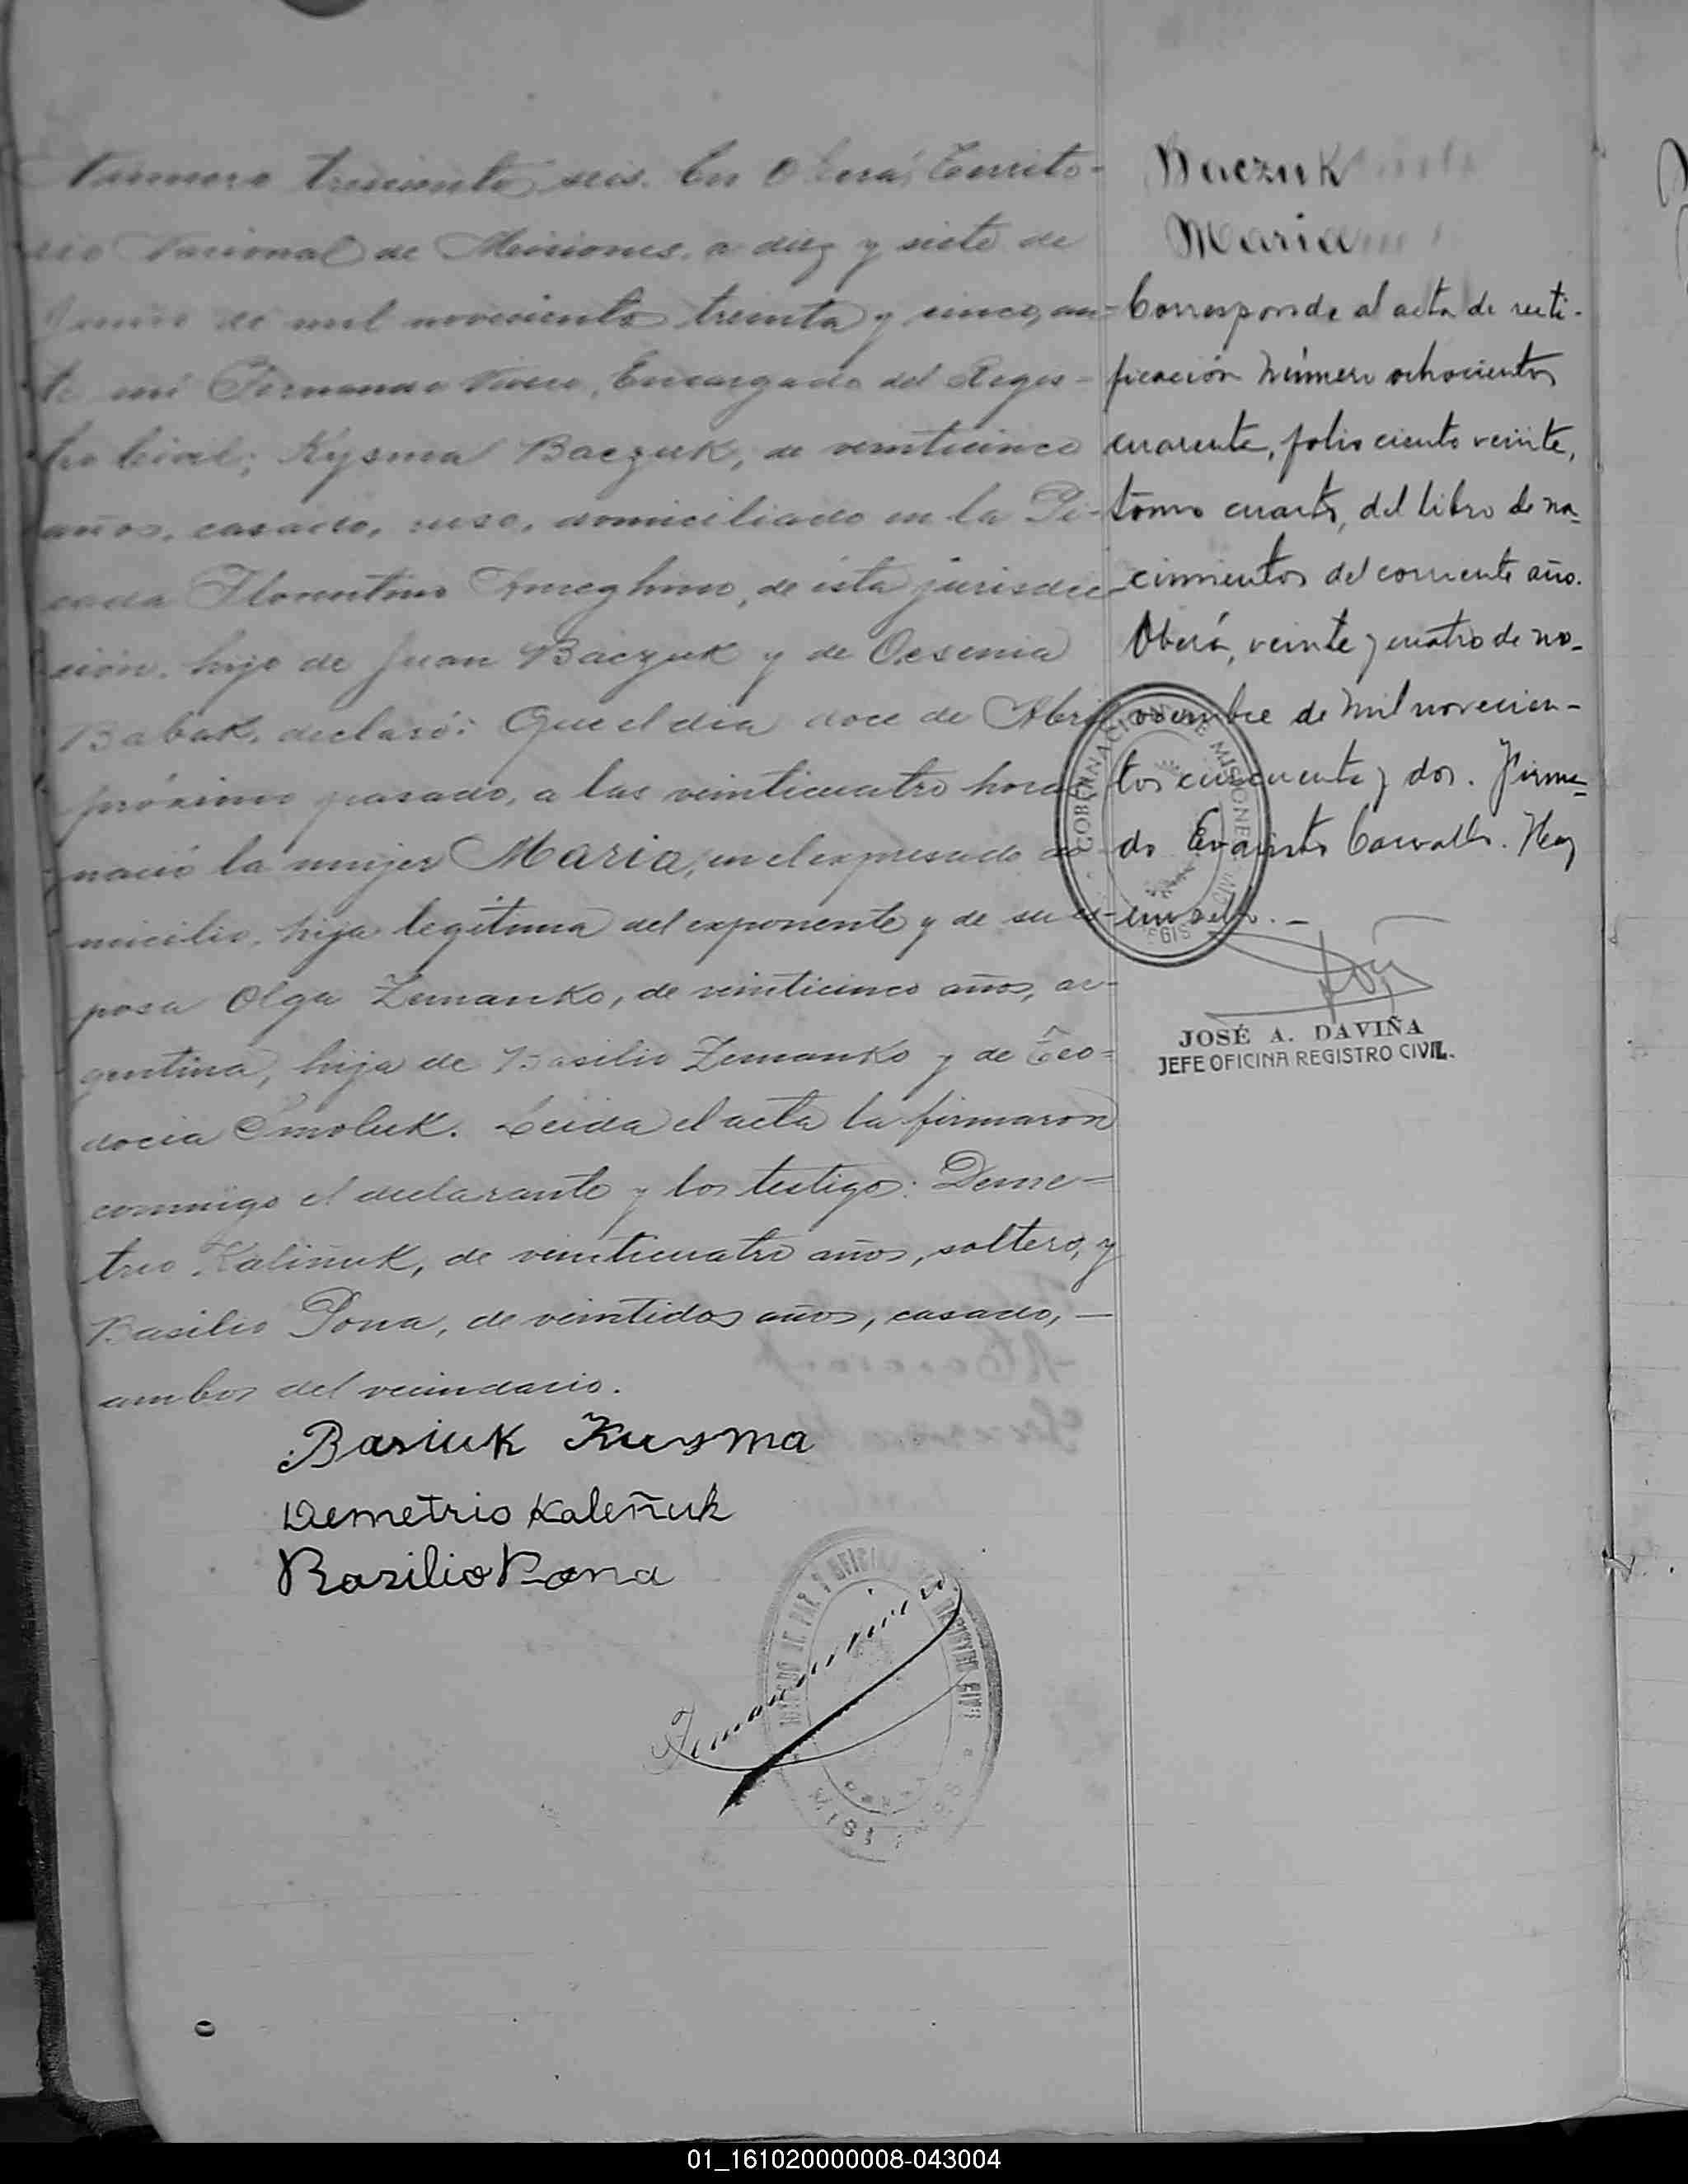 Número trescientos seis. En Oberá, Territo-
rio Nacional de Misiones, a diez y siete de
Junio de mil novecientos treinta y cinco, an-
te mí Fernando Encargado del Regis-
tro Civil; Kysma Baczuk, de veinticinco
años, casado, ruso, domiciliado en la Pi-
cada Florentino Ameghino, de ésta jurisdic-
ción, hijo de Juan Baczuk y de Ocsenia
Babak, declaró: Que el día doce de Abril
próximo pasado, a las veinticuatro horas
nació la mujer Maria, en el expresado do-
micilio, hija legítima del exponente y de su es-
posa Olga Zemanko, de veinticinco años, ar-
gentina, hija de Basilio Zemanko y de Teo-
docia Smoluk. Leida el acta la firmaron
conmigo el declarante y los testigos: Deme-
trio Kaliñuk, de veinticuatro años, soltero, y
Basilio Pona, de veintidos años, casado, —
ambos del vecindario.
Basiuk Kusma
Demetrio Kaleñuk
Basilio Pona
Baczuk
Maria
Corresponde al acta de recti-
ficación número ochocientos
cuarenta, folio ciento veinte,
tomo cuarto, del libro de na-
cimientos del corriente año.
Oberá, veinte y cuatro de no-
viembre de mil novecien-
tos cincuenta y dos. Firma-
do Evaristo Carvallo. Hay
un sello. -
GOBERNACION DE MISIONES
JOSÉ A. DAVIÑA
JEFE OFICINA REGISTRO CIVIL.
01_161020000008-043004